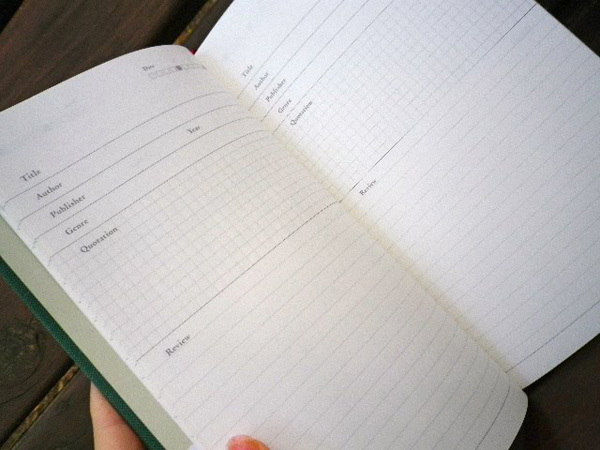 Date
Title
Author
Publisher Year
Genre
Quotation
Review
Title
Author
Publisher
Genre
Quotation
Review